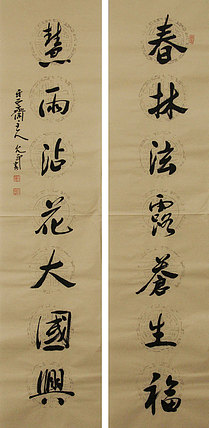 春林法露蒼生福
慧雨沾花大國興
齋主人